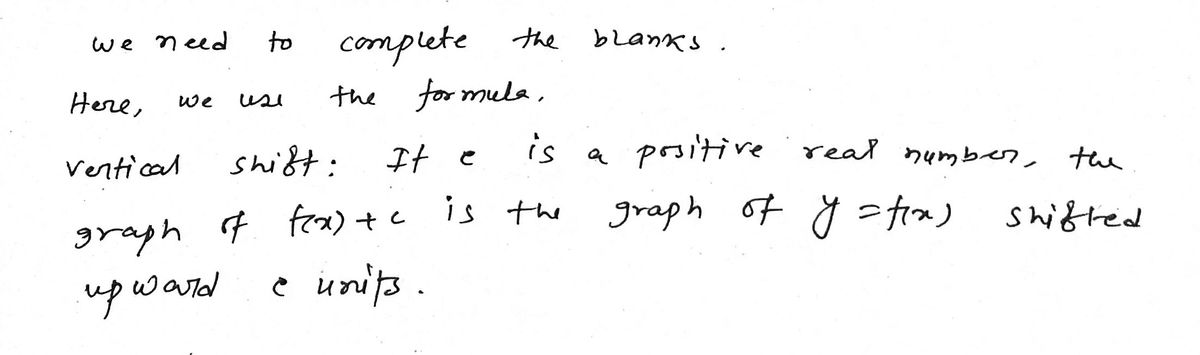 we need to complete the blanks.
Here, we use the formula.
Vertical shift: If c is a positive real number, the
graph of f(x) + c is the graph of y = f(x) shifted
upward c units.